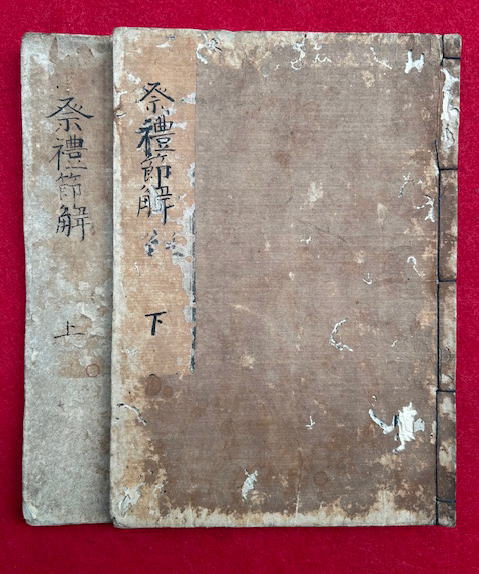 祭禮節解
下
祭禮節解
上